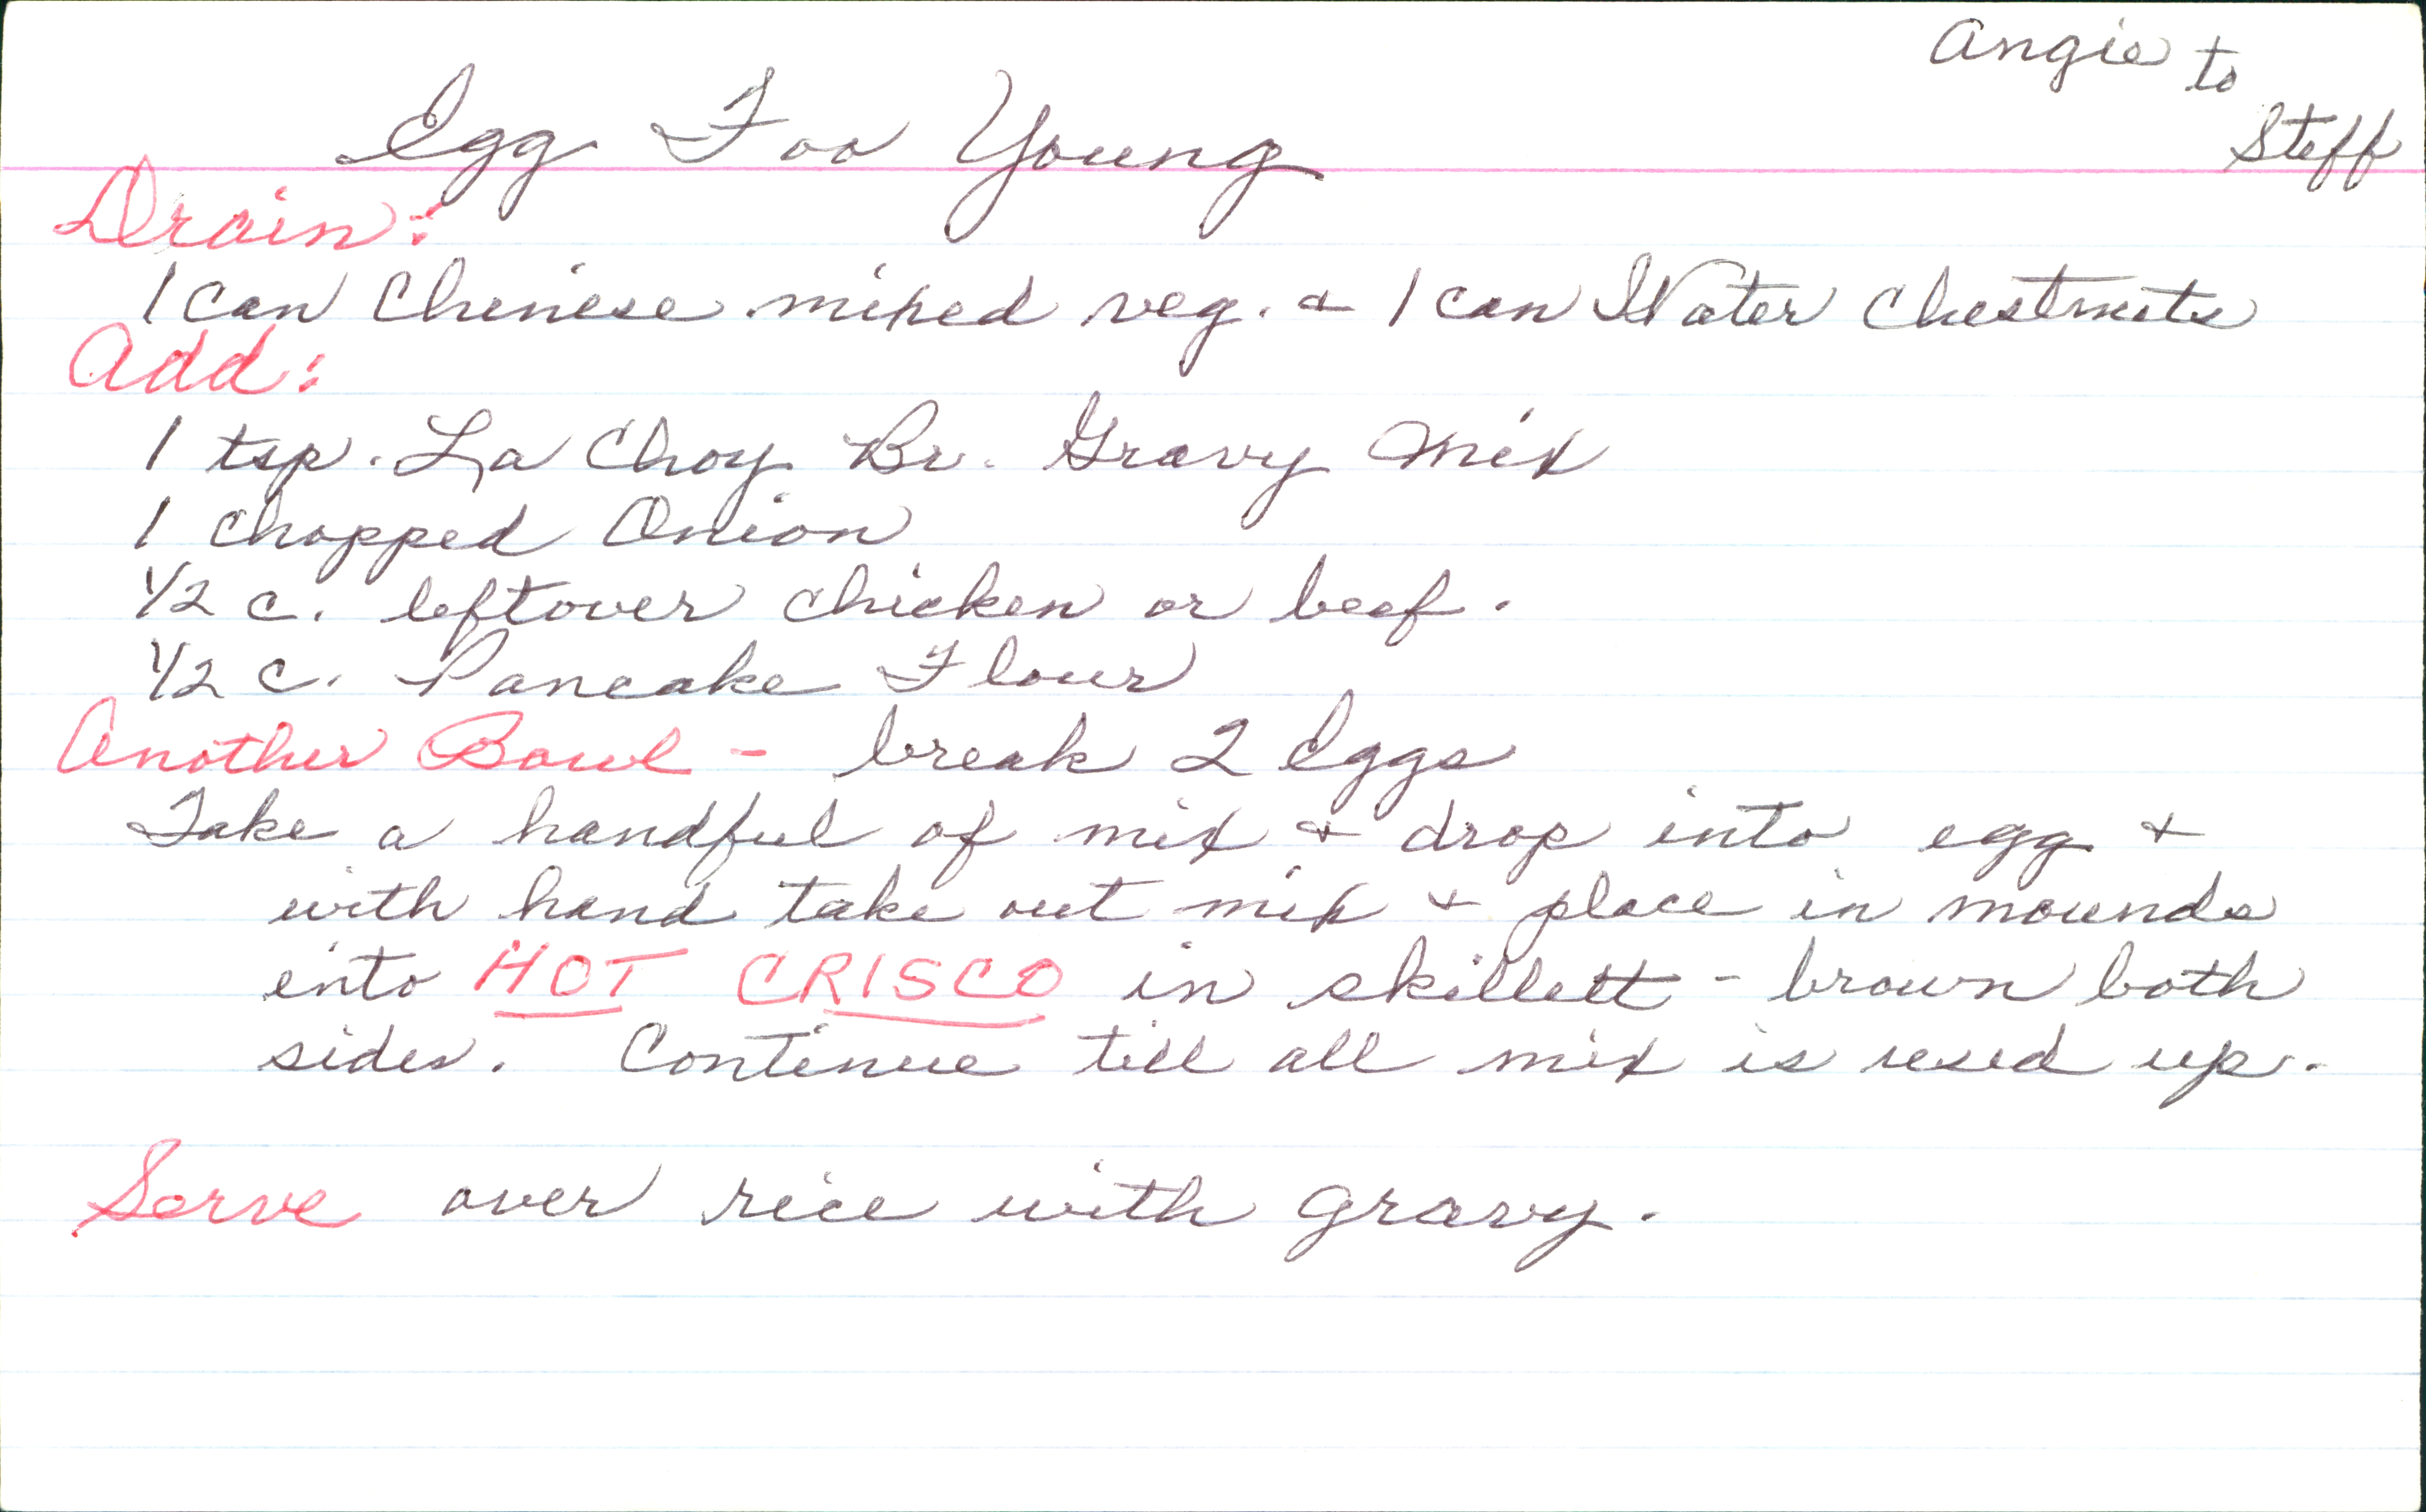 Angie to
Steff
Egg Foo Young
Drain:
1 can Chinese mixed veg. & 1 can Water Chestnuts
Add:
1 tsp. La Choy Br. Gravy Mix
1 chopped Onion
1/2 c. leftover chicken or beef.
1/2 c. Pancake Flour
Another Bowl - break 2 Eggs
Take a handful of mix & drop into egg &
with hand take out mix & place in mounds
into HOT CRISCO in skillett - brown both
sides. Continue till all mix is used up.
Serve over rice with gravy.